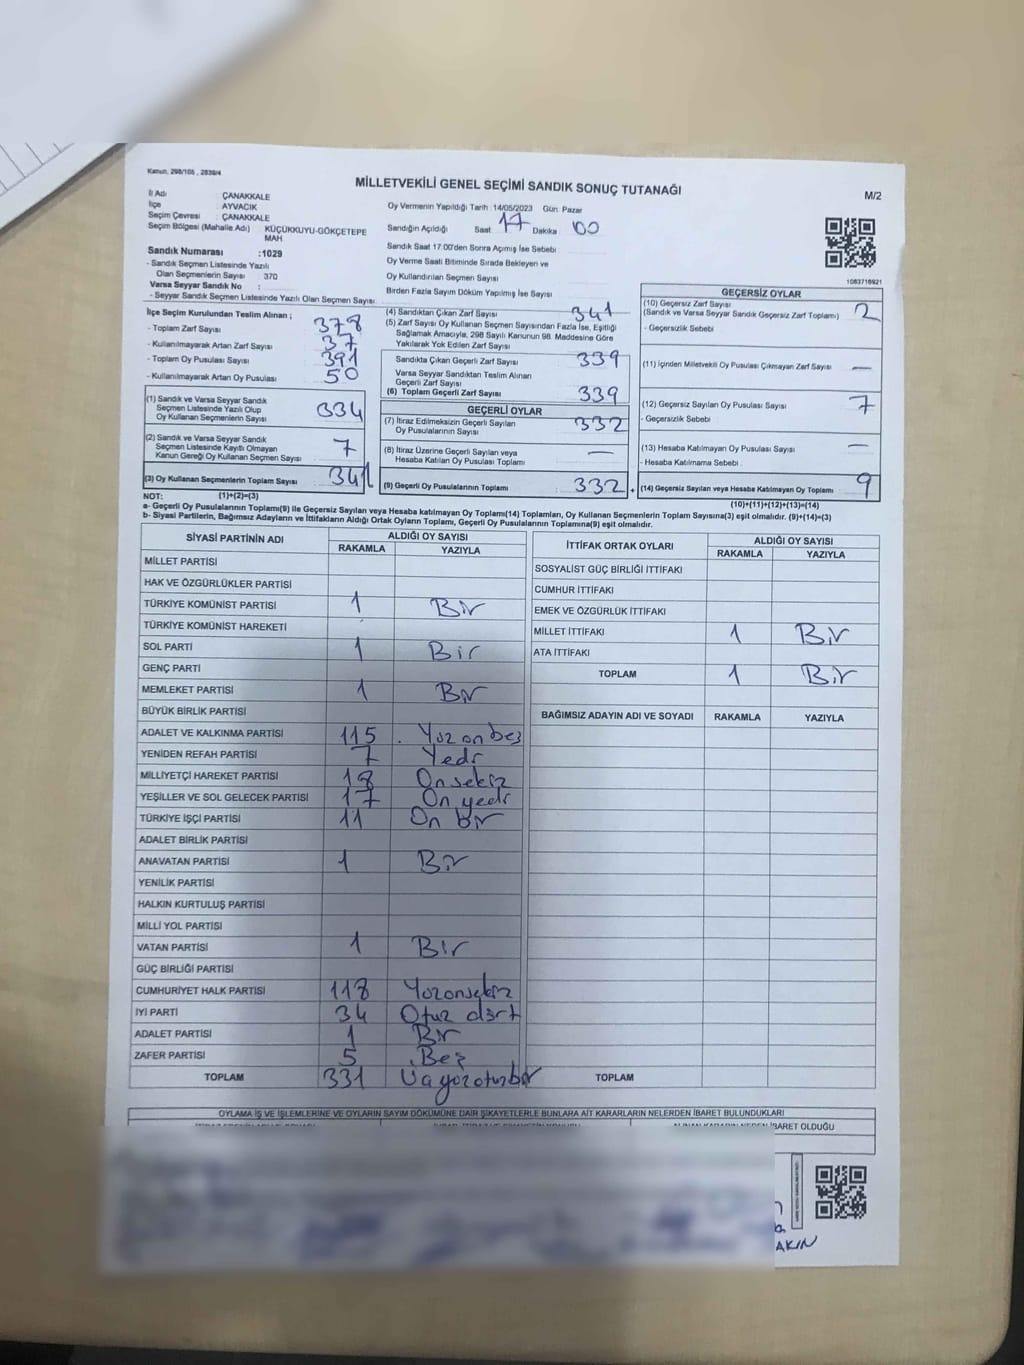 Kanun, 298/105 , 2839/4
MİLLETVEKİLİ GENEL SEÇİMİ SANDIK SONUÇ TUTANAĞI
M/2
İl Adı : ÇANAKKALE
İlçe : AYVACIK
Seçim Çevresi : ÇANAKKALE
Seçim Bölgesi (Mahalle Adı) : KÜÇÜKKUYU-GÖKÇETEPE MAH
Sandık Numarası :1029
- Sandık Seçmen Listesinde Yazılı
Olan Seçmenlerin Sayısı : 370
Varsa Seyyar Sandık No :
- Seyyar Sandık Seçmen Listesinde Yazılı Olan Seçmen Sayısı:
Oy Vermenin Yapıldığı Tarih :14/05/2023 Gün: Pazar
Sandığın Açıldığı Saat 17 Dakika 00
Sandık Saat 17.00'den Sonra Açımış İse Sebebi
Oy Verme Saati Bitiminde Sırada Bekleyen ve
Oy Kullandırılan Seçmen Sayısı
Birden Fazla Sayım Döküm Yapılmış İse Sayısı
1083718921
İlçe Seçim Kurulundan Teslim Alınan ;
- Toplam Zarf Sayısı 378
- Kullanılmayarak Artan Zarf Sayısı 37
- Toplam Oy Pusulası Sayısı 391
- Kullanılmayarak Artan Oy Pusulası 50
(1) Sandık ve Varsa Seyyar Sandık
Seçmen Listesinde Yazılı Olup
Oy Kullanan Seçmenlerin Sayısı 334
(2) Sandık ve Varsa Seyyar Sandık
Seçmen Listesinde Kayıtlı Olmayan
Kanun Gereği Oy Kullanan Seçmen Sayısı 7
(3) Oy Kullanan Seçmenlerin Toplam Sayısı 341
(4) Sandıktan Çıkan Zarf Sayısı 341
(5) Zarf Sayısı Oy Kullanan Seçmen Sayısından Fazla İse, Eşitliği
Sağlamak Amacıyla, 298 Sayılı Kanunun 98. Maddesine Göre
Yakılarak Yok Edilen Zarf Sayısı
Sandıkta Çıkan Geçerli Zarf Sayısı 339
Varsa Seyyar Sandıktan Teslim Alınan
Geçerli Zarf Sayısı
(6) Toplam Geçerli Zarf Sayısı 339
GEÇERLİ OYLAR
(7) İtiraz Edilmeksizin Geçerli Sayılan
Oy Pusulalarının Sayısı 332
(8) İtiraz Üzerine Geçerli Sayılan veya
Hesaba Katılan Oy Pusulası Toplamı —
(9) Geçerli Oy Pusulalarının Toplamı 332 +
GEÇERSİZ OYLAR
(10) Geçersiz Zarf Sayısı
(Sandık ve Varsa Seyyar Sandık Geçersiz Zarf Toplamı) 2
- Geçersizlik Sebebi
(11) İçinden Milletvekili Oy Pusulası Çıkmayan Zarf Sayısı —
(12) Geçersiz Sayılan Oy Pusulası Sayısı 7
- Geçersizlik Sebebi
(13) Hesaba Katılmayan Oy Pusulası Sayısı —
- Hesaba Katılmama Sebebi
(14) Geçersiz Sayılan veya Hesaba Katılmayan Oy Toplamı 9
NOT: (1)+(2)=(3)
(10)+(11)+(12)+(13)=(14)
a- Geçerli Oy Pusulalarının Toplamı(9) ile Geçersiz Sayılan veya Hesaba Katılmayan Oy Toplamı(14) Toplamları, Oy Kullanan Seçmenlerin Toplam Sayısına(3) eşit olmalıdır. (9)+(14)=(3)
b- Siyasi Partilerin, Bağımsız Adayların ve İttifakların Aldığı Ortak Oyların Toplamı, Geçerli Oy Pusulalarının Toplamına(9) eşit olmalıdır.
SİYASİ PARTİNİN ADI
ALDIĞI OY SAYISI
RAKAMLA YAZIYLA
MİLLET PARTİSİ
HAK VE ÖZGÜRLÜKLER PARTİSİ
TÜRKİYE KOMÜNİST PARTİSİ 1 Bir
TÜRKİYE KOMÜNİST HAREKETİ
SOL PARTİ 1 Bir
GENÇ PARTİ
MEMLEKET PARTİSİ 1 Bir
BÜYÜK BİRLİK PARTİSİ
ADALET VE KALKINMA PARTİSİ 115 Yüz on beş
YENİDEN REFAH PARTİSİ 7 Yedi
MİLLİYETÇİ HAREKET PARTİSİ 18 On sekiz
YEŞİLLER VE SOL GELECEK PARTİSİ 17 On yedi
TÜRKİYE İŞÇİ PARTİSİ 11 On bir
ADALET BİRLİK PARTİSİ
ANAVATAN PARTİSİ 1 Bir
YENİLİK PARTİSİ
HALKIN KURTULUŞ PARTİSİ
MİLLİ YOL PARTİSİ
VATAN PARTİSİ 1 Bir
GÜÇ BİRLİĞİ PARTİSİ
CUMHURİYET HALK PARTİSİ 118 Yüzonsekiz
İYİ PARTİ 34 Otuz dört
ADALET PARTİSİ 1 Bir
ZAFER PARTİSİ 5 Beş
TOPLAM 331 Üçyüzotuzbir
İTTİFAK ORTAK OYLARI
ALDIĞI OY SAYISI
RAKAMLA YAZIYLA
SOSYALİST GÜÇ BİRLİĞİ İTTİFAKI
CUMHUR İTTİFAKI
EMEK VE ÖZGÜRLÜK İTTİFAKI
MİLLET İTTİFAKI 1 Bir
ATA İTTİFAKI
TOPLAM 1 Bir
BAĞIMSIZ ADAYIN ADI VE SOYADI RAKAMLA YAZIYLA
TOPLAM
OYLAMA İŞ VE İŞLEMLERİNE VE OYLARIN SAYIM DÖKÜMÜNE DAİR ŞİKAYETLERLE BUNLARA AİT KARARLARIN NELERDEN İBARET BULUNDUKLARI
İBARET OLDUĞU
AKIN